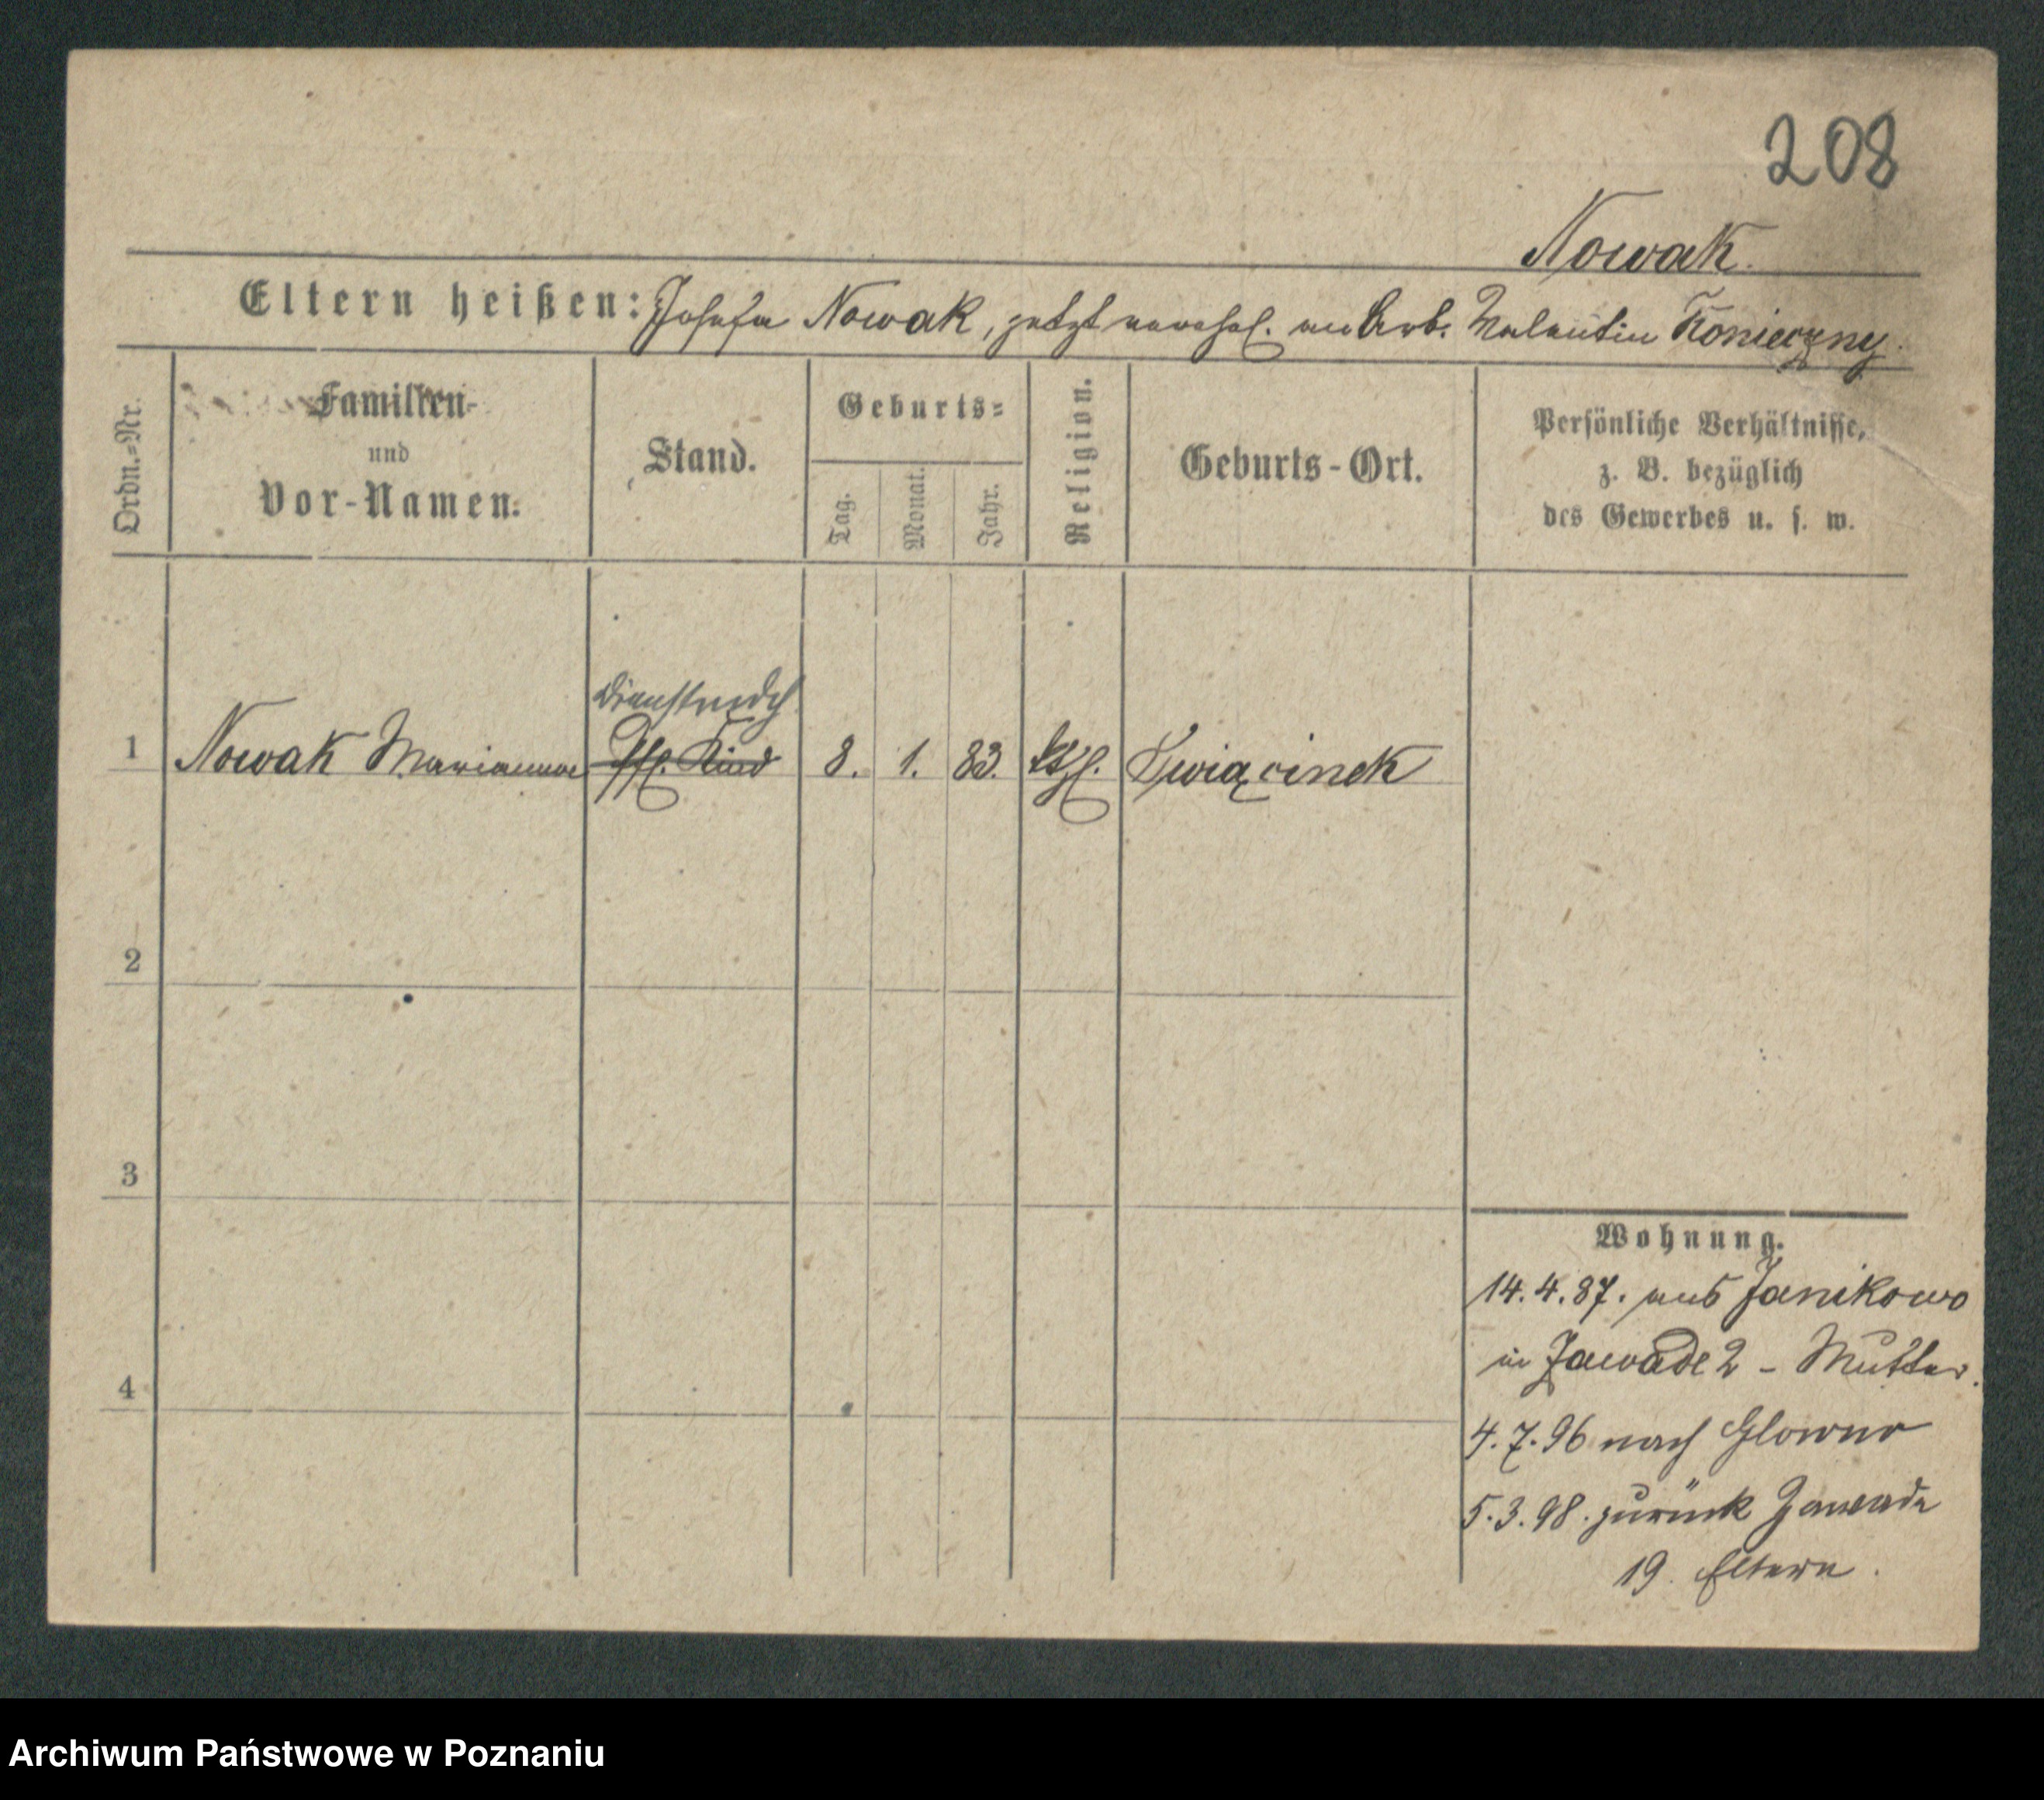 208
Nowak.
Eltern heißen: Josefa Nowak, jetzt verehel. an Arb. Valentin Konieczny.
Ordn.-Nr.
Familien-
und
Vor-Namen.
Stand.
Geburts-
Tag.
Monat.
Jahr.
Religion.
Geburts-Ort.
Persönliche Verhältnisse,
z. B. bezüglich
des Gewerbes u. s. w.
Dienstmdch
1 Nowak Marianna Kind 8. 1. 83. kth. Swiącinek
2
3
4
Wohnung.
14.4.87. aus Janikowo
in Zawade 2 - Mutter.
4.7.96 nach Glowno
5.3.98. zurück Zawade
19. Eltern.
Archiwum Państwowe w Poznaniu